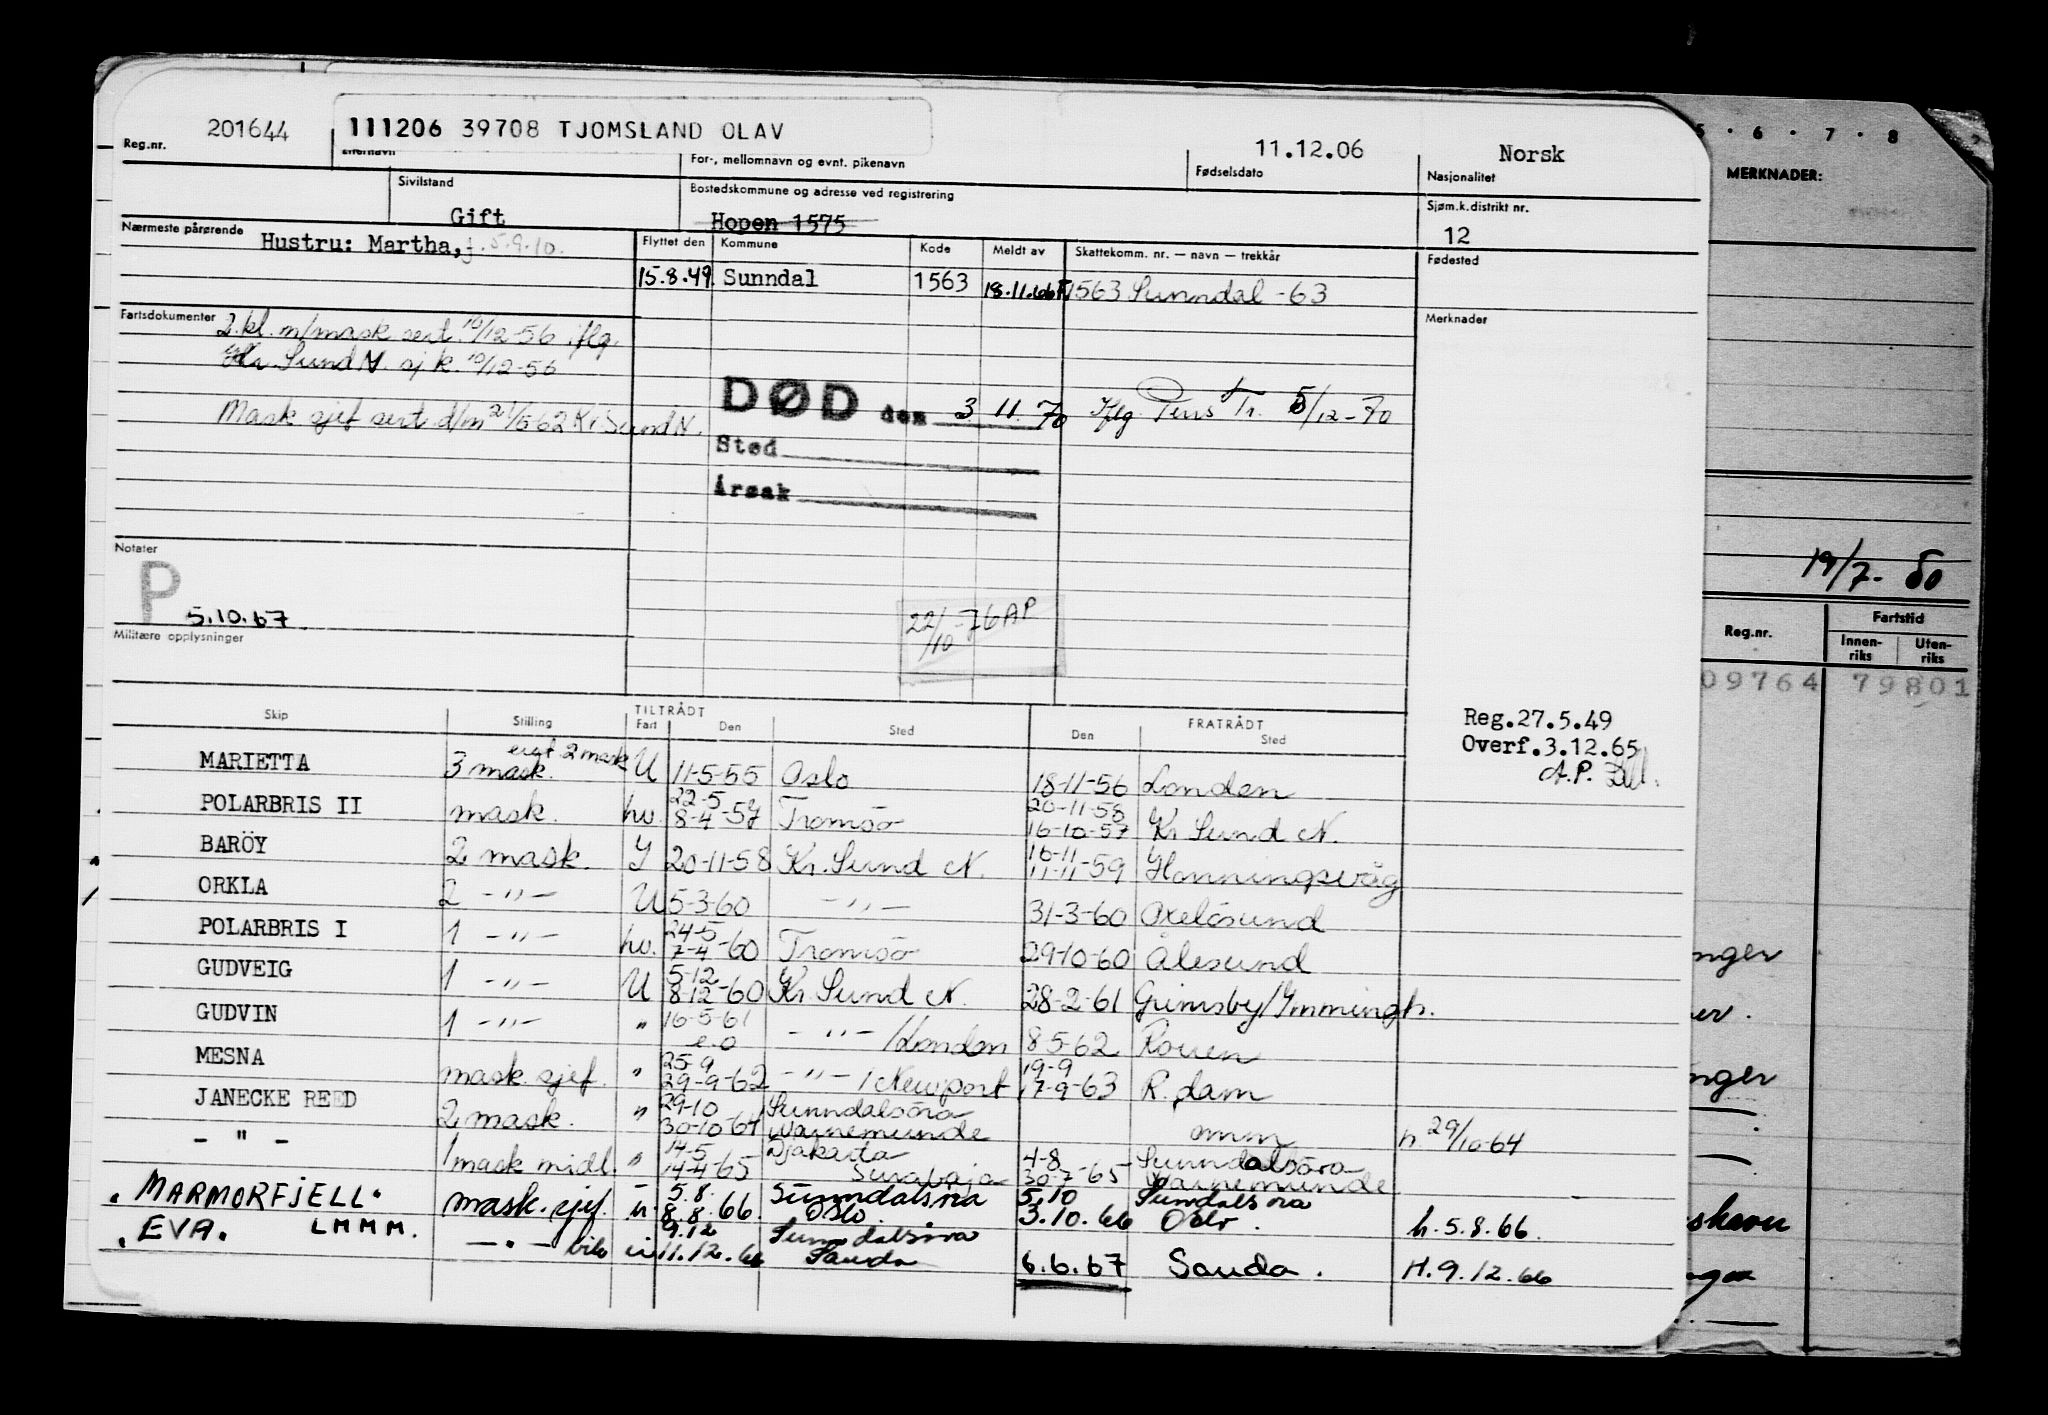 201644 111206 39708 TJOMSLAND OLAV 11.12.06 Norsk
Reg.nr. Etternavn For-, mellomnavn og evnt. pikenavn Fødselsdato Nasjonalitet
Sivilstand Bostedskommune og adresse ved registrering Sjøm.k.distrikt nr.
Gift Hopen 1575 12
Nærmeste pårørende Hustru: Martha, f. 5.9.10. Flyttet den Kommune Kode Meldt av Skattekomm. nr. — navn — trekkår Fødested
15.8.49 Sunndal 1563 18.11.66 1563 Sunndal -63
Fartsdokumenter 2. kl. m/mask sert. 10/12-56 iflg. Merknader
Kr. Sund N. sj k. 10/12-56
Mask sjef sert d/m 21/5 62 Kr Sund N.
DØD den 3. 11. 70 Iflg. Pens Tr. 5/12-70
Sted
Årsak
Notater
P
5.10.67
22/10-76 AP
Militære opplysninger
Skip Stilling TILTRÅDT Fart Den Sted FRATRÅDT Den Sted
Reg.27.5.49
Overf.3.12.65
A.P.
MARIETTA 3 mask. 2 mask U 11-5-55 Oslo 18-11-56 London
POLARBRIS II mask. hv. 22-5 8-4-57 Tromsö 20-11-58 16-10-57 Kr Sund N.
BARÖY 2 mask. I 20-11-58 Kr. Sund N. 16-11 11-11-59 Honningsvåg
ORKLA 2 -"- U 5-3-60 -"- 31-3-60 Oxelösund
POLARBRIS I 1 -"- hv. 24-5 7-4-60 Tromsö 29-10-60 Ålesund
GUDVEIG 1 -"- U 5-12 8-12-60 Kr Sund N. 28-2-61 Grimsby/Immingh.
GUDVIN 1 -"- " 16-5-61 e.o -"- /London 8-5-62 Rouen
MESNA mask. sjef. " 25-9 29-9-62 -"- /Newport 19-9 17-9-63 R.dam
JANECKE REED 2 mask. " 29-10 30-10-64 Sunndalsöra Warnemünde mm h. 29/10-64
- " - 1 mask midl. " 14-5 14-4-65 Djakarta Surabaja 4-8 30-7-65 Sunndalsöra Warnemünde
"MARMORFJELL" mask. sjef. u 5.8. 8.8.66. Sunndalsöra Oslo 5.10 3.10.66 Sundalsöra Oslo. h. 5.8.66.
"EVA. LMMM. -"- u 9.12 11.12.66 Sunndalsöra Sauda 6.6.67 Sauda. H. 9.12.66
5 · 6 · 7 · 8
MERKNADER:
19/7-50
Reg.nr. Fartstid
Innen-riks Uten-riks
09764 79801
nger
er.
nger